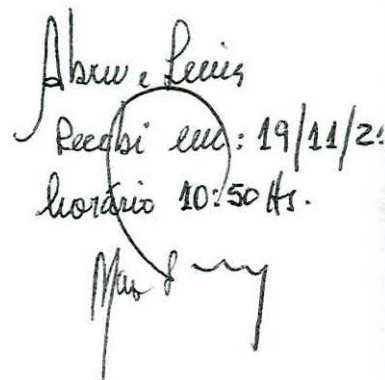 Abreu e Leuis
Recebi em: 19/11/2
horário 10:50 Hs.